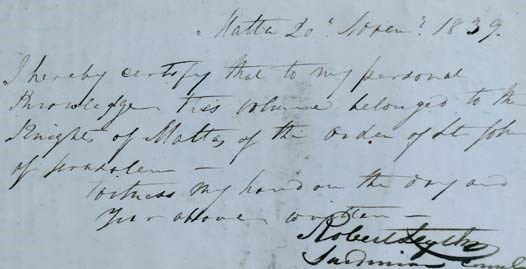 Malta 20th Novem 1839.
I hereby certify that to my personal
Knowledge this volume belonged to the
Knights of Malta of the order of St John
of Jerusalem —
Witness my hand on the day and
Year above written —
Robert
Sardinian Consul